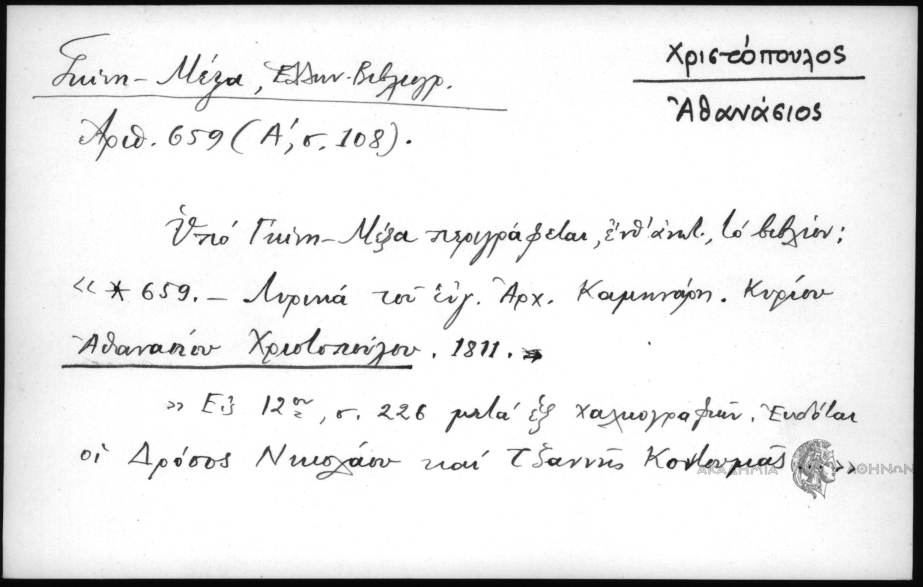 Γκίνη – Μέξα, Ἑλλην. Βιβλιογρ.
Χριστόπουλος
Ἀθανάσιος
Ἀριθ. 659 (Α΄, σ. 108).
Ὑπό Γκίνη – Μέξα περιγράφεται, ἔνθ' ἀνωτ., τό βιβλίον:
«* 659. – Λυρικά τοῦ εὐγ. Ἄρχ. Καμηνάρη. Κυρίου
Ἀθανασίου Χριστοπούλου. 1811.
» Εἰς 12ον, σ. 226 μετά ἕξ χαλκογραφιῶν. Ἐκδόται
οἱ Δρόσος Νικολάου καί Τζαννῆς Κοντουμᾶς...»
ΑΚΑΔΗΜΙΑ ΑΘΗΝΩΝ